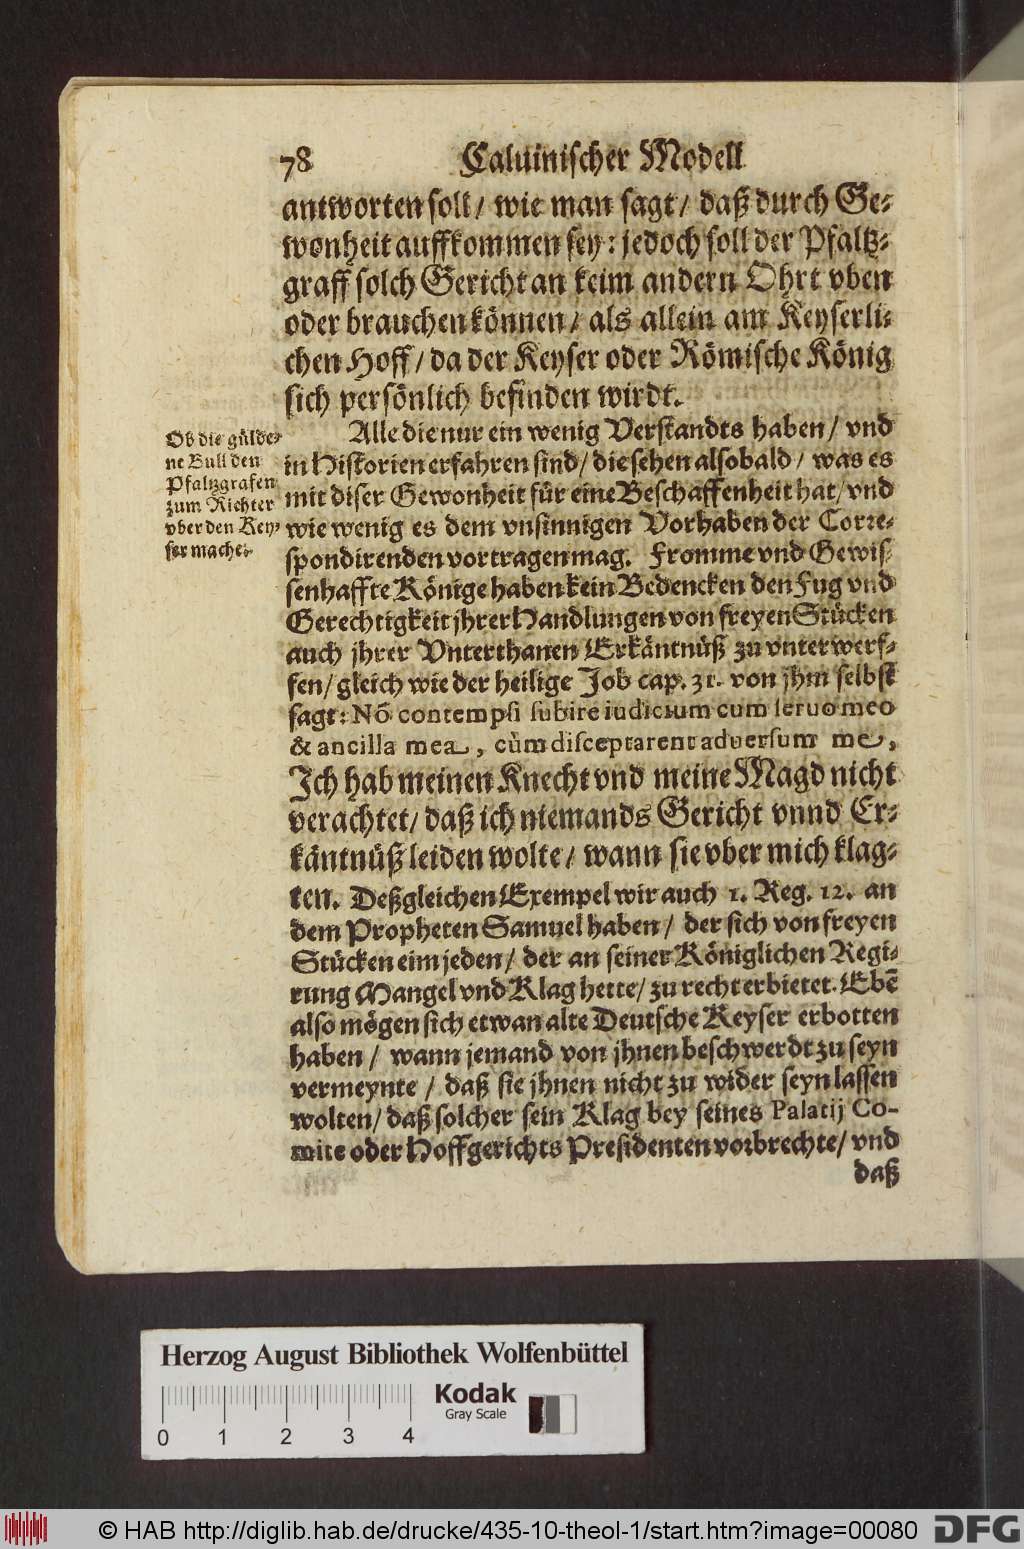 78 Caluinischer Modell
antworten soll / wie man sagt / daß durch Ge-
wonheit auffkommen sey: jedoch soll der Pfaltz-
graff solch Gericht an keim andern Ohrt vben
oder brauchen können / als allein am Keyserli-
chen Hoff / da der Keyser oder Römische König
sich persönlich befinden wirdt.
Ob die gülde-
ne Bull den
Pfaltzgrafen
zum Richter
vber den Key-
ser mache.
Alle die nur ein wenig Verstandts haben / vnd
in Historien erfahren sind / die sehen alsobald / was es
mit diser Gewonheit für eine Beschaffenheit hat / vnd
wie wenig es dem vnsinnigen Vorhaben der Corre-
spondirenden vortragen mag. Fromme vnd Gewis-
senhaffte Könige haben kein Bedencken den Fug vnd
Gerechtigkeit jhrer Handlungen von freyen Stücken
auch jhrer Vnterthanen Erkäntnüß zu vnterwerf-
fen / gleich wie der heilige Job cap. 31. von jhm selbst
sagt: Nõ contempsi subire iudicium cum seruo meo
& ancilla mea, cùm disceptarent aduersum me,
Ich hab meinen Knecht vnd meine Magd nicht
verachtet / daß ich niemands Gericht vnnd Er-
käntnüß leiden wolte / wann sie vber mich klag-
ten. Deßgleichen Exempel wir auch 1. Reg. 12. an
dem Propheten Samuel haben / der sich von freyen
Stücken eim jeden / der an seiner Königlichen Regi-
rung Mangel vnd Klag hette / zu recht erbietet. Ebẽ
also mögen sich etwan alte Deutsche Keyser erbotten
haben / wann jemand von jhnen beschwerdt zu seyn
vermeynte / daß sie jhnen nicht zu wider seyn lassen
wolten / daß solcher sein Klag bey seines Palatij Co-
mite oder Hoffgerichts Presidenten vorbrechte / vnd
daß
Herzog August Bibliothek Wolfenbüttel
Kodak
Gray Scale
0 1 2 3 4
© HAB http://diglib.hab.de/drucke/435-10-theol-1/start.htm?image=00080 DFG